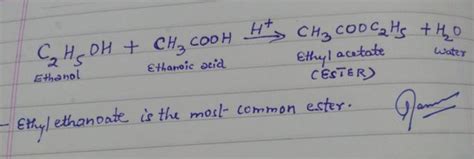 C₂H₅OH + CH₃COOH —H⁺→ CH₃COOC₂H₅ + H₂O
Ethanol Ethanoic acid Ethyl acetate Water
(ESTER)
- Ethyl ethanoate is the most common ester.